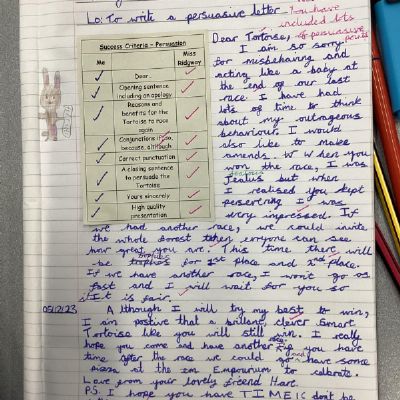 LO: To write a persuasive letter
You have
included lots
of persuasive
points
Success Criteria – Persuasion
Me
Miss
Ridgway
Dear..
Opening sentence
including an apology
Reasons and
benefits for the
Tortoise to race
again
Conjunctions if, so,
because, although
Correct punctuation
A closing sentence
to persuade the
Tortoise
Yours sincerely
High quality
presentation
Dear Tortoise,
I am so sorry
for misbehaving and
acting like a baby at
the end of our last
race I have had
lots of time to think
about my outrageous
behaviour. I would
also like to make
amends. W When you
won the race, I was
jealous
Jealus but when
I realised you kept
persevering I was
very impressed. If
we had another race, we could invite
the whole forest then eryone can see
how great you are. This time there will
be trophies for 1st place and 2nd place.
If we have another race, I won't go as
fast and I will wait for you so
it is fair.
05/12/23
Although I will try my best to win,
I am postive that a brillant, clever smart
Tortoise like you will still win. I really
hope you come and have another race. If you have
time after the race we could go and have some
pizza at the Emporium to celbrate.
Love from your lovely friend Hare.
P.S. I hope you have TIME is dont be